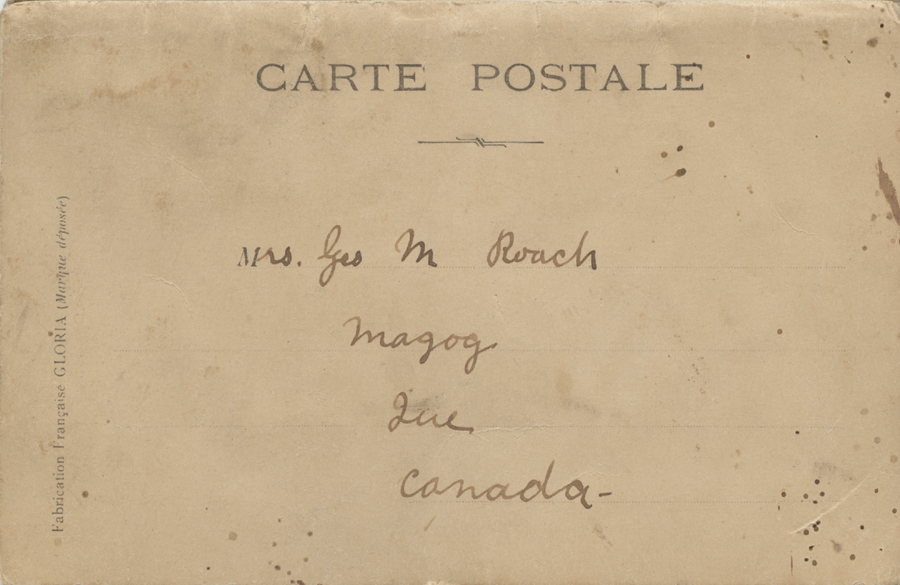 CARTE POSTALE
Mrs. Geo M Roach
Magog
Que
Canada-
Fabrication Française GLORIA (Marque déposée)